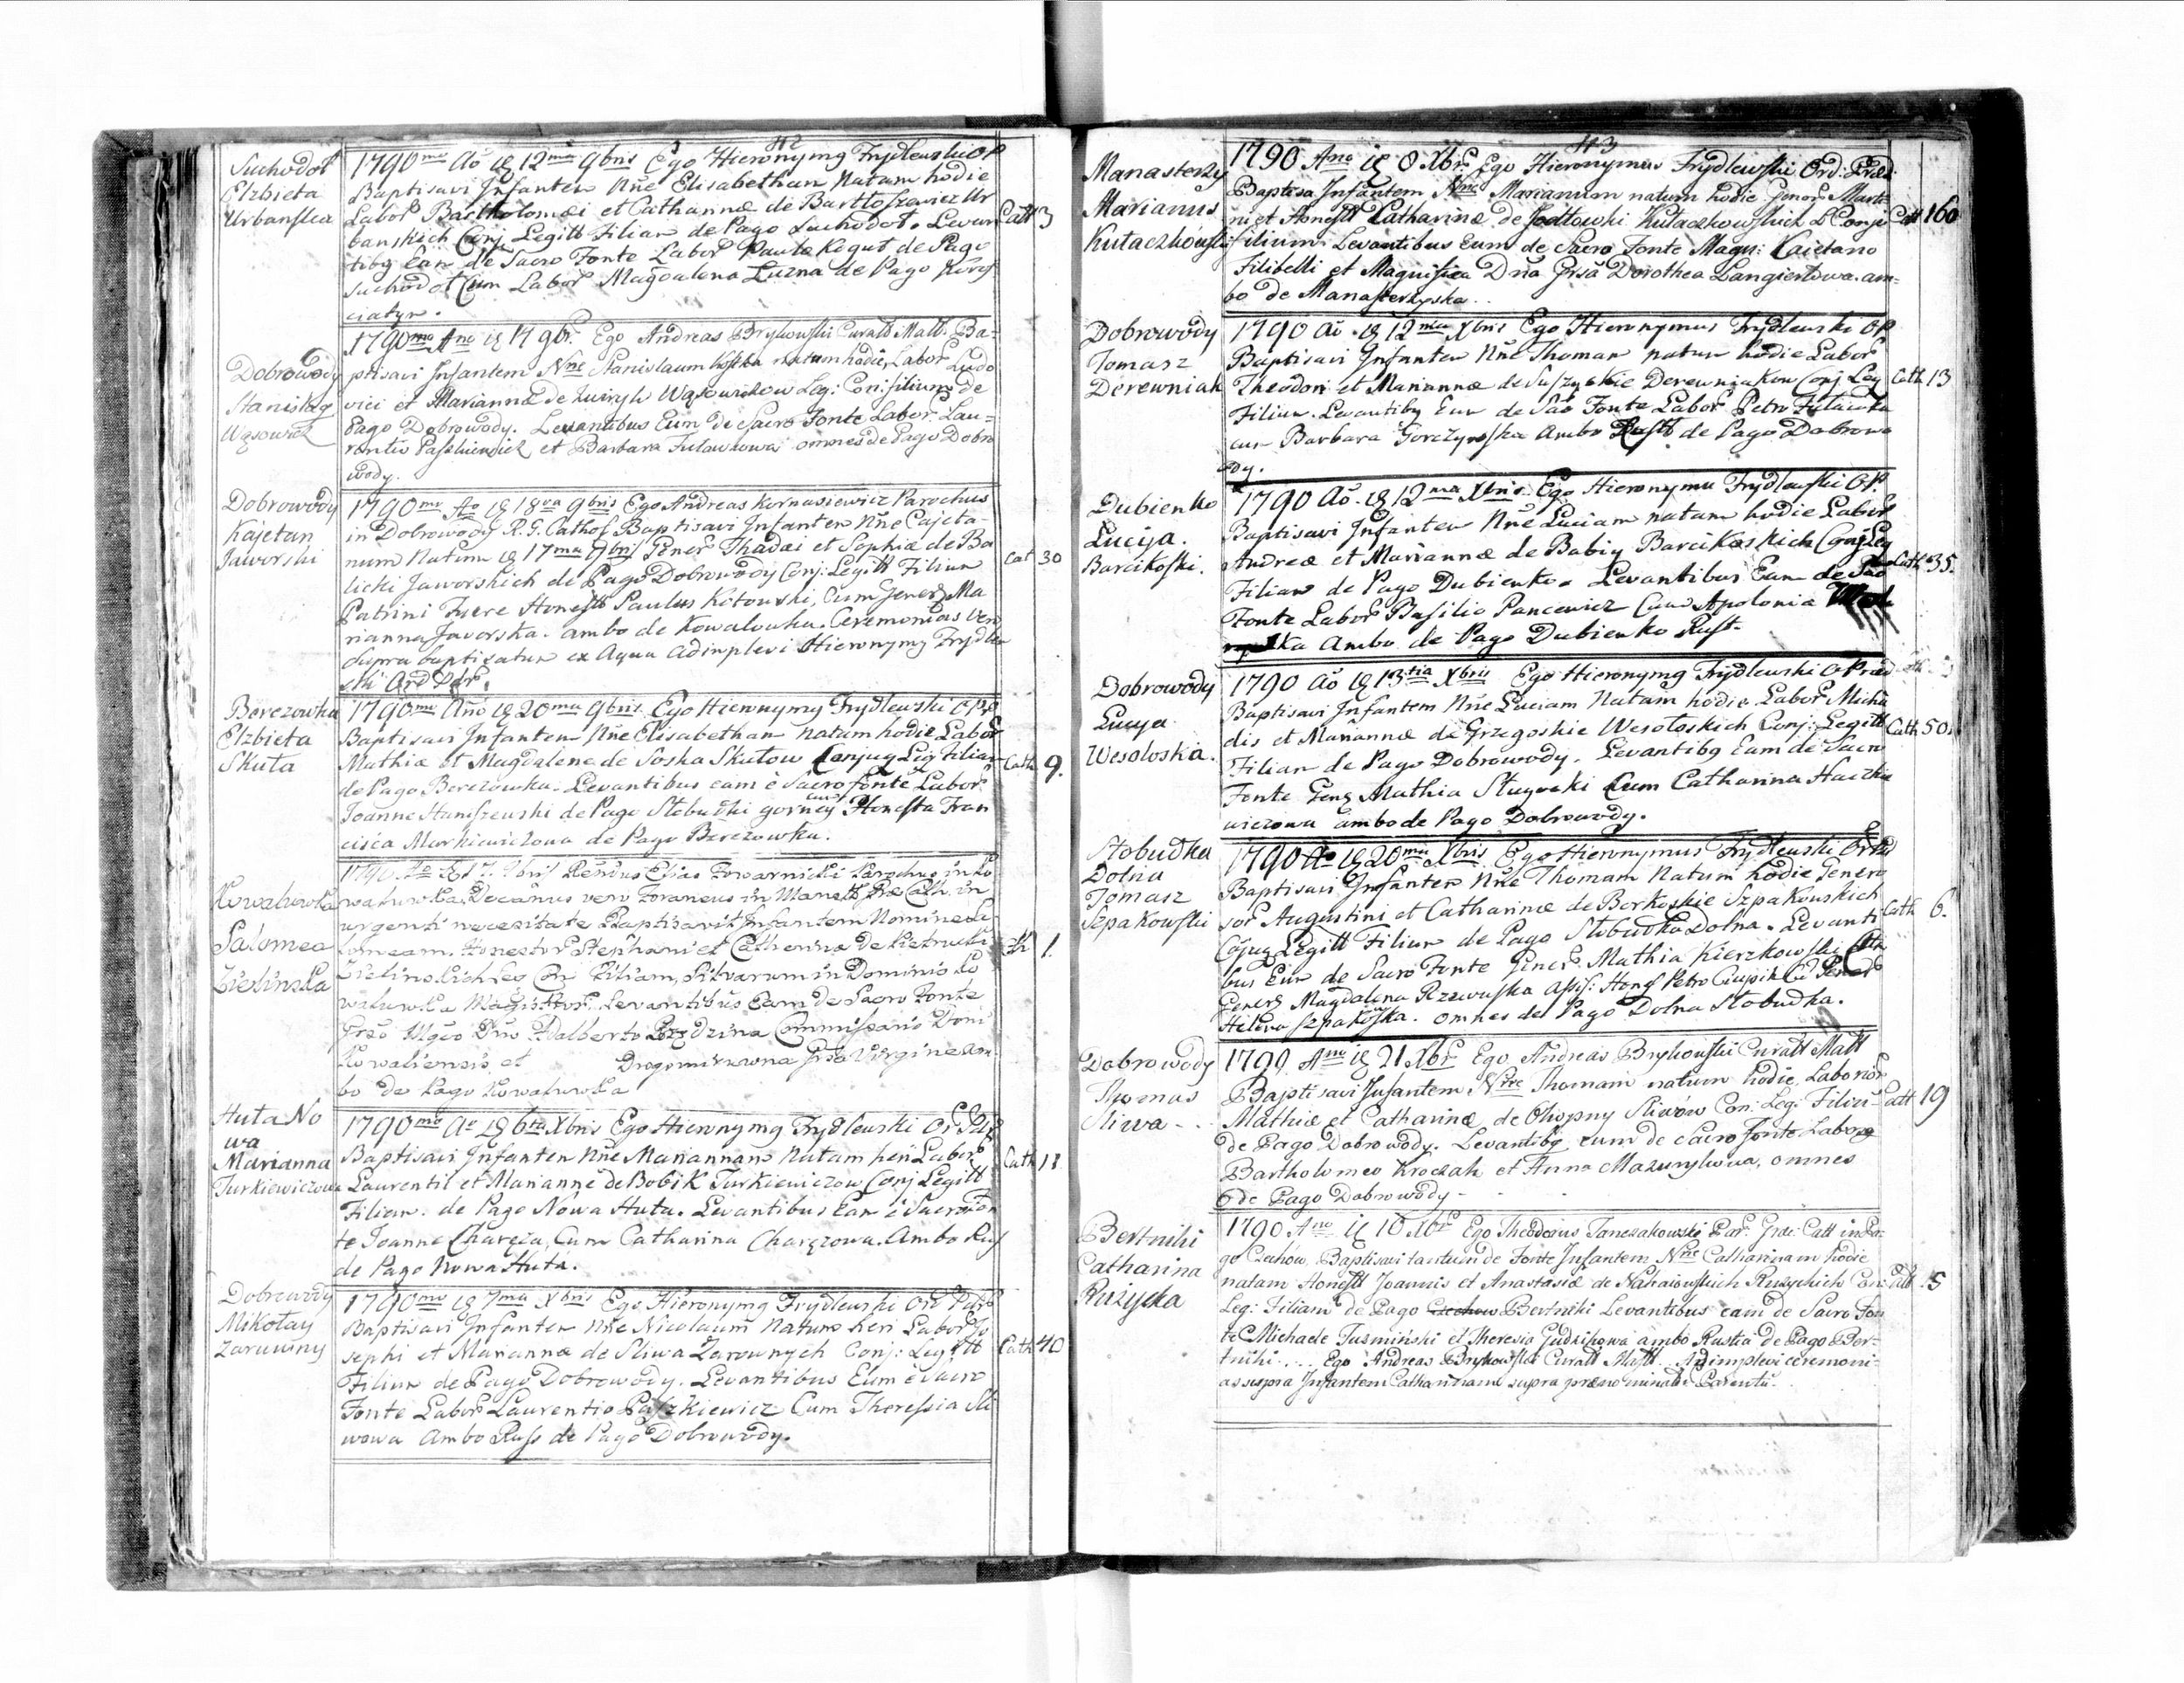 42
Suchodoł
Elzbieta
Urbanska
1790mo Ao ię 12ma 9bris Ego Hieronymg Frydlewski OP
Baptisavi Infantem Nne Elisabetham Natam hodie
Labor Bartholomæi et Catharinæ de Bartloszewicz Ur
banskich Conj Legitt Filiam de Pago Suchodoł. Levan
tibg Eam de Sacro Fonte Labor Paulo Kogut de Pago
Suchodoł Cum Labor Magdalena Luzna de Pago
ciatyn.
Catt 3
Dobrowody
Stanislag
Wąsowicz
1790mo Ano ię 17 9br. Ego Andreas Brykowski Curatt Matt. Ba-
ptisavi Infantem Nne Stanislaum Kostka natum hodie, Labor Ludo
vici et Mariannæ de Wąsowiczow Leg: Coni filium de
Pago Dobrowody. Levantibus Eum de Sacro Fonte Labor. Lau=
rentio Paszkiewicz et Barbara Futawkowa omnes de Pago Dobro
wody.
Dobrowody
Kajetan
Jaworski
1790mo Ao ię 18va 9bris Ego Andreas Kornasiewicz Parochus
in Dobrowody R. G. Cathol. Baptisavi Infantem Nne Cajeta-
num Natum ię 17ma 9bris Gener Thadæi et Sophiæ de Ba
licki Jaworskich de Pago Dobrowody Conj: Legitt Filium
Patrini Fuere Honestt Paulus Kotowski, Cum Gener Ma
rianna Jaworska. ambo de Kowalowka. Ceremonias ver
Supra baptisatum ex Aqua Adimplevi Hieronymg Frydlew
ski Ord Pdr.
Cat 30
Berezowka
Elzbieta
Skuta
1790mo Ano ię 20ma 9bris Ego Hieronymg Frydlewski OPd
Baptisavi Infantem Nne Elisabetham natam hodie Labor
Mathiæ et Magdalene de Soska Skutow Conjug Leg Filiam
de Pago Berezowka. Levantibus eam è Sacro fonte Labor
Joanne Staniszewski de Pago Słobudki gorney cum Honesta Fran
cisca Murkiewiczowa de Pago Berezowka.
Cath 9.
Kowalowka
Salomea
Zielinska
1790. Ao 17 9bris Rendus Elias Towarnicki Parochus in Ko
walowka Decanus vero Foraneus in Monast: Græ Cath. in
urgenti necesitate Baptisavit Infantem Nomine Sa
lomeam. Honestor Stephani et Catherina de Pietrucki
Zielinskich Leg Con Filiam, Silvarum in Dominio Ko
walowka Magistror. Levantibus Eam de Sacro Fonte
Grso Mgco Dno Adalberto Commissario Doni
Kowaliensis et Drogomirzowna Grsa Virgine am
bo de Pago Kowalowka
1.
Huta No
wa
Marianna
Turkiewiczowa
1790mo Ao ię 6ta Xbris Ego Hieronymg Frydlewski Or Pdr
Baptisavi Infantem Nne Mariannam Natam heri Labor
Laurentii et Marianne de Bobik Turkiewiczow Conj Legitt
Filiam. de Pago Nowa Huta. Levantibus Eam è Sacro Fon
te Joanne Charęza, Cum Catharina Charęzowa. Ambo Rus
de Pago Nowa Huta.
Cath 18
Dobrowody
Mikołay
Zarowny
1790mo ię 7ma Xbris Ego Hieronymg Frydlewski Ord Pdr
Baptisavi Infantem Nne Nicolaum Natum heri Labor Jo
sephi et Mariannæ de Sliwa Zarownych Conj: Legitt
Filium de Pago Dobrowody. Levantibus Eum è Sacro
Fonte Labor Laurentio Paszkiewicz Cum Theressia Sli
wowa Ambo Russ de Pago Dobrowody.
Cath 40
43
Manasterzy
Marianus
Kutaczkówski
1790 Ano ię 8 Xbr. Ego Hieronymus Frydlewski Ord: Præd:
Baptisa Infantem Nne Marianum natum hodie Gener Marti
ni et Honestt Catharinæ de Jodłowski Kutaczkowskich L Conju
filium. Levantibus Eum de Sacro Fonte Magn: Caietano
Filibelli et Magnifica Dna Grsa Dorothea Langiertowa. am=
bo de Manasterzyska.
Catt 160
Dobrowody
Tomasz
Derewniak
1790 Ao. ię 12ma Xbris Ego Hieronymus Frydlewski OP
Baptisavi Infantem Nne Thomam natum hodie Labor
Theodori et Mariannæ de Derewniakow Conj Leg
Filium. Levantibg Eum de Sao Fonte Labor Petro Futawka
cum Barbara Gorczynska Ambo Rustt de Pago Dobrowo
dy.
Cath 13
Dubienko
Łucyja.
Barcikoski.
1790 Ao. ię 12ma Xbris. Ego Hieronymu Frydlewski OP.
Baptisavi Infantem Nne Luciam natam hodie Labor
Andreæ et Mariannæ de Babiy Barcikoskich Conj Leg
Filiam de Pago Dubienko. Levantibus Eam de Sao
Fonte Labor Basilio Pancewicz Cum Apolonia
Ambo de Pago Dubienko Rust.
Cath 35.
Dobrowody
Łucyja
Wesołoska.
1790 Ao ię 13tia Xbris Ego Hieronymg Frydlewski OPræd
Baptisavi Infantem Nne Luciam Natam hodie Labor Micha
elis et Mariannæ de Grzegoskie Wesołoskich Conj: Legitt
Filiam de Pago Dobrowody. Levantibg Eam de Sacro
Fonte Genr Mathia Stugocki Cum Catharina Haczkie
wiczowa ambo de Pago Dobrowody.
Cath 50
Słobudka
Dolna
Tomasz
Szpakowski
1790 Ao ię 20ma Xbris Ego Hieronymus Frydlewski Or Pd
Baptisavi Infantem Nne Thomam Natum hodie Genero
sor Augustini et Catharinæ de Berkoskie Szpakowskich
Cojug Legitt Filium de Pago Słobudka Dolna. Levanti
bus Eum de Sacro Fonte Gener. Mathia Kierzkowski Cum
Generos Magdalena Rzewuska assis: Honest Petro Ciupik Cu Gener
Helena Szpakoska. omnes de Pago Dolna Słobudka.
Cath 6.
Dobrowody
Thomas
Sliwa - -
1790 Ano ię 21 Xbr Ego Andreas Brykowski Curatt Matt
Baptisavi Infantem Nne Thomam natum hodie, Laborior
Mathiæ et Catharinæ de Ohopny Sliwów Con: Leg: Filiu-
de Pago Dobrowody. Levantibg eum de Sacro fonte Laborg
Bartholomeo Kroczak et Anna Mazurykowa, omnes
de Pago Dobrowody -
Catt 19
Bertniki
Catharina
Rużycka
1790 Ano ię 10 Xbr Ego Theodorus Tanczakowski Par. Græ: Catt in Pa-
go Czechów Baptisavi tantum de Fonte Infantem Nne Catharinam hodie
natam Honestt Joannis et Anastasiæ de Nahaiowskich Rużyckich Con:
Leg: Filiam de Pago Czechow Bertniki Levantibus eam de Sacro Fon
te Michaele Tuzmiński et Theresia Gudzikowa ambo Rustici de Pago Ber-
tniki.... Ego Andreas Brykowski Curatt Mastt. Adimplevi ceremoni-
as supra Infantem Catharinam supra prænominator Parentu.
Catt 5